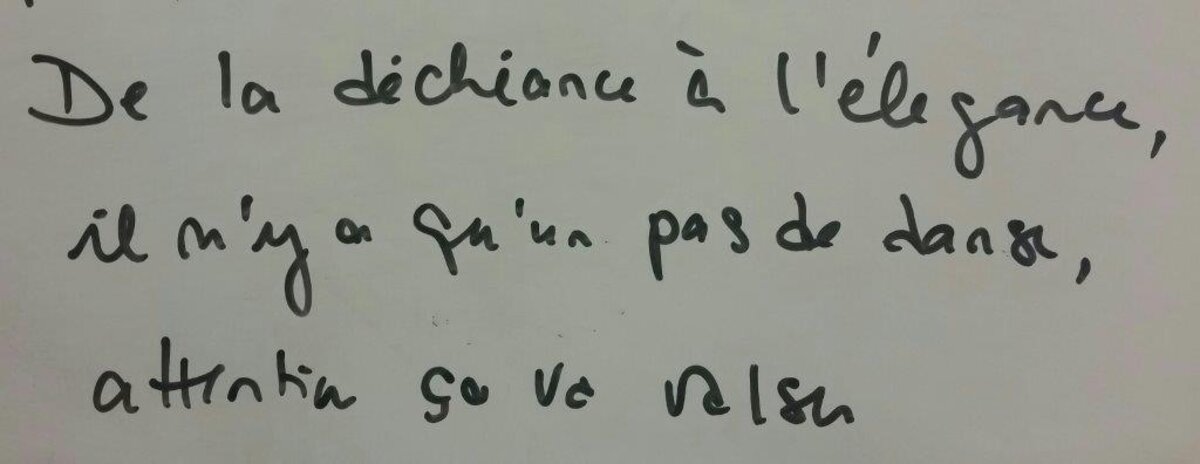 De la déchéance à l'élegance,
il n'y a qu'un pas de danse,
attention ça va valser